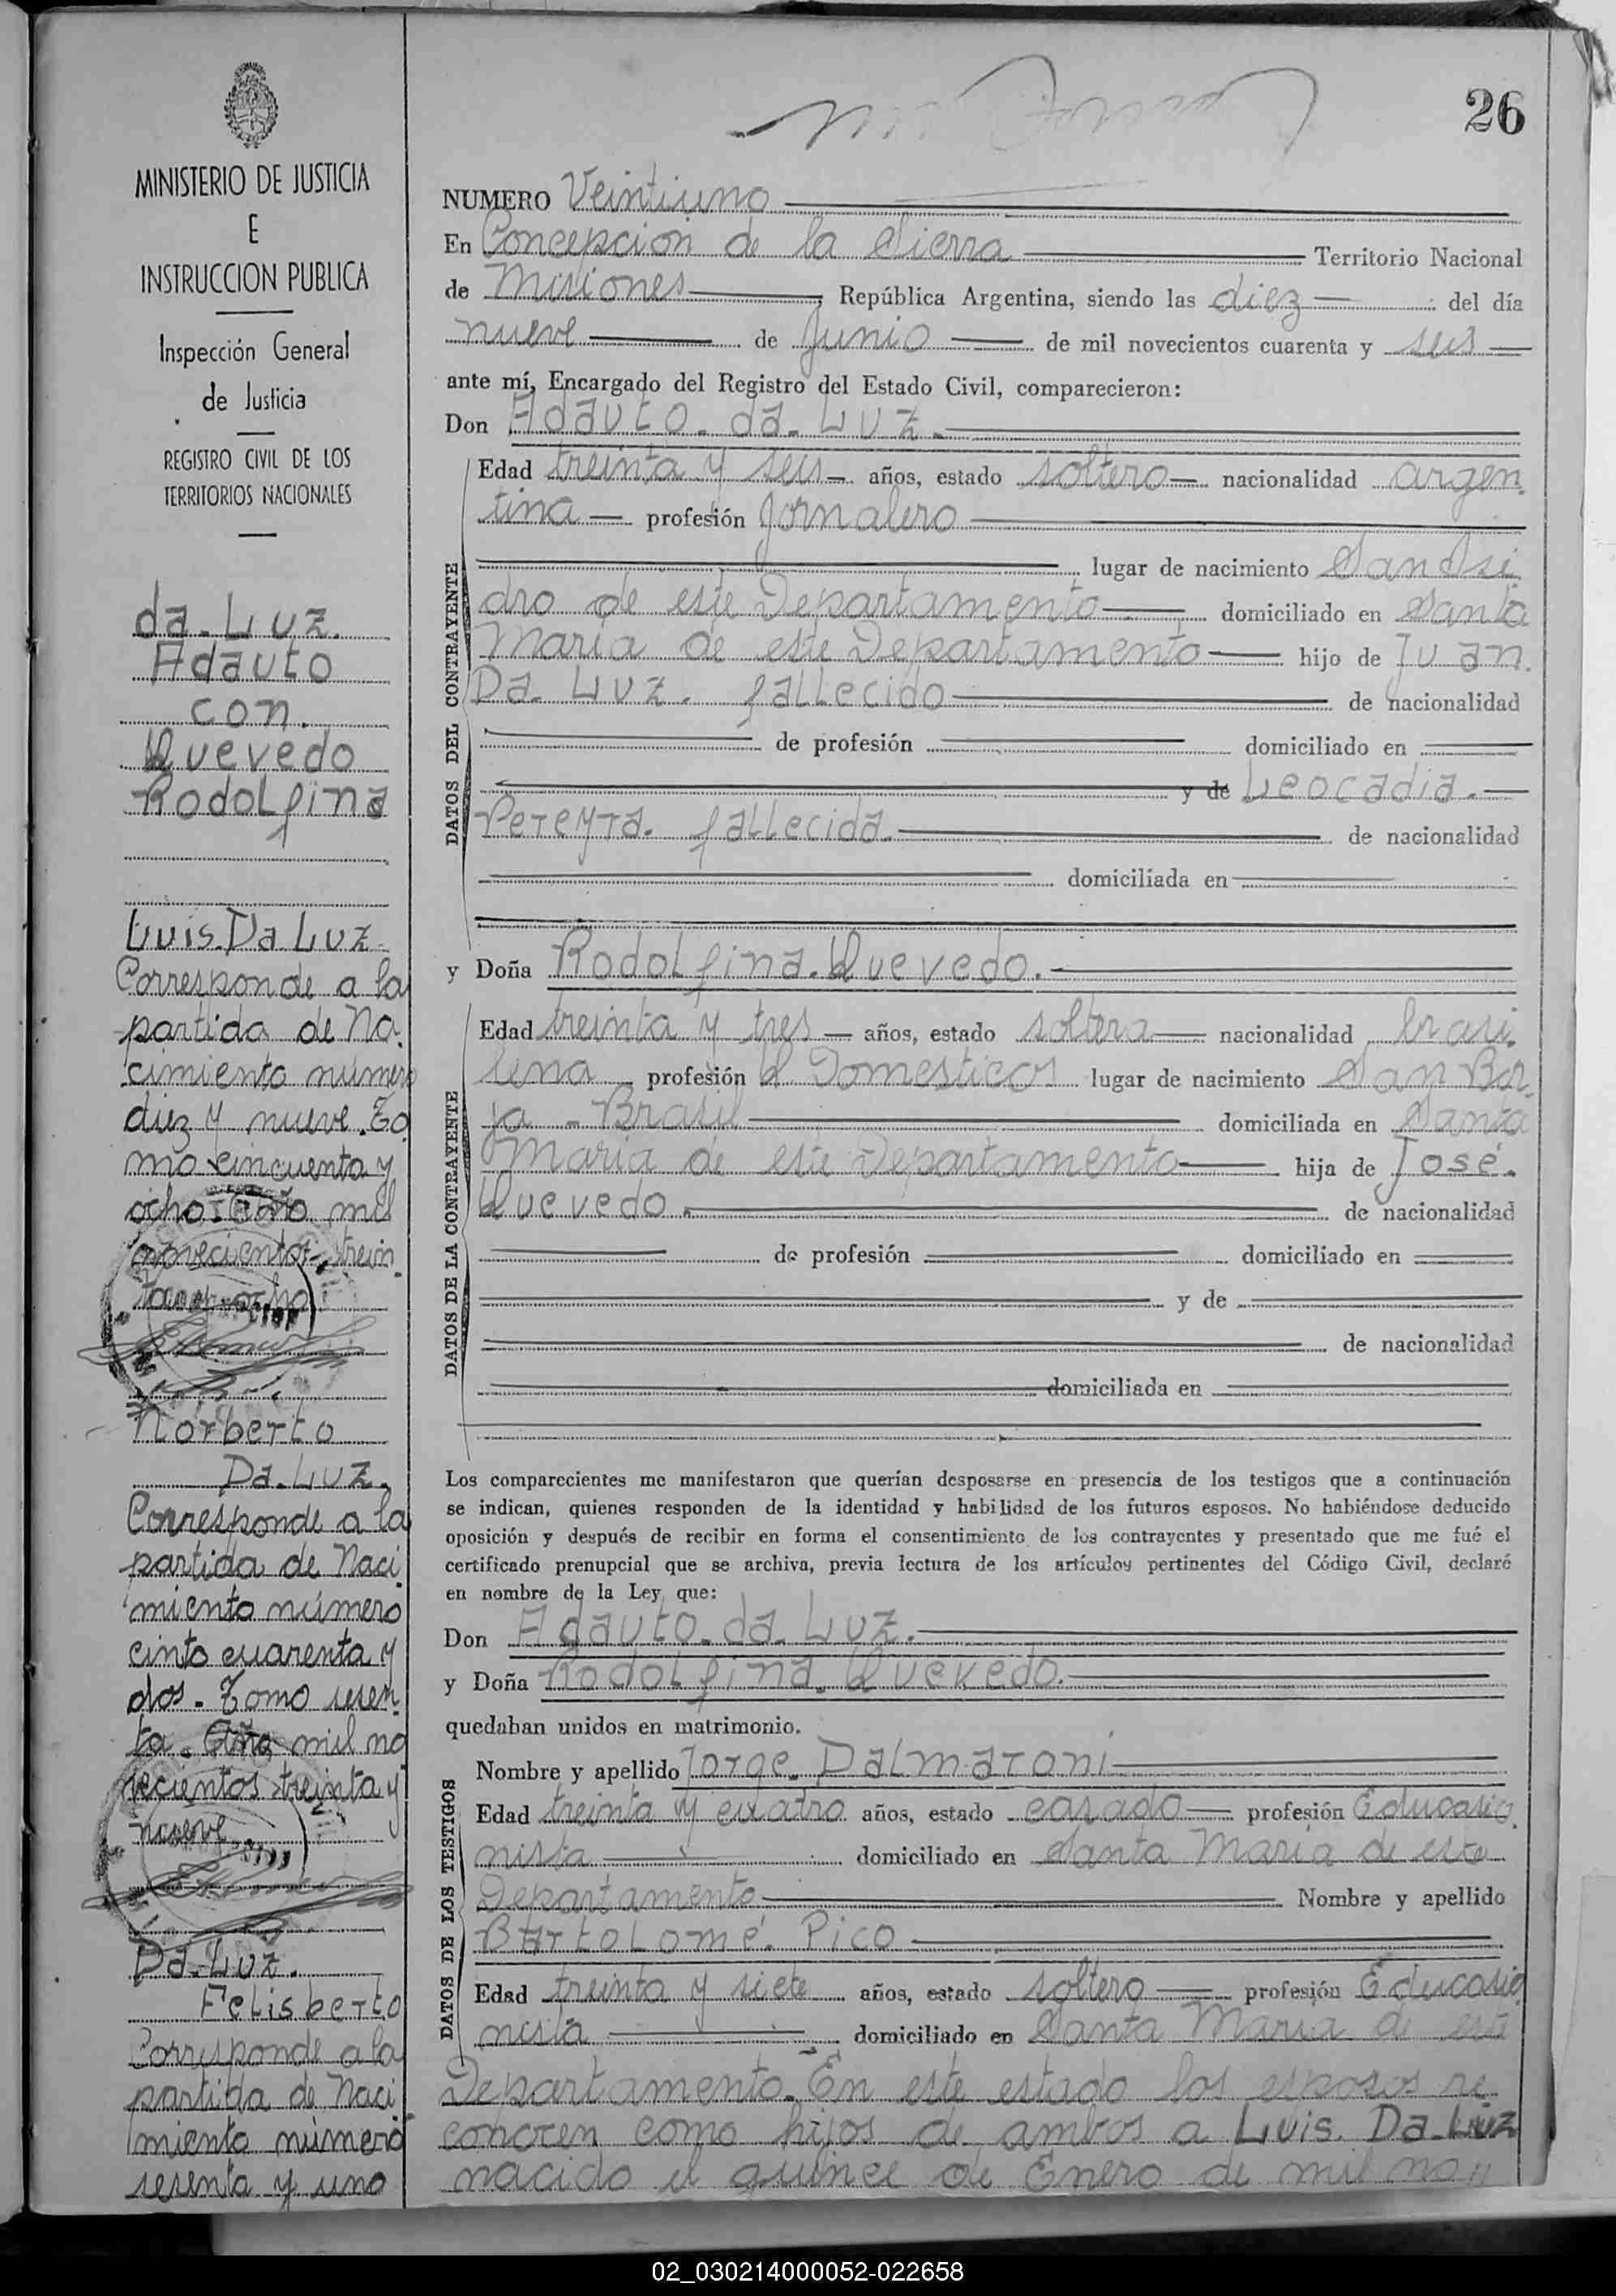 26
MINISTERIO DE JUSTICIA
E
INSTRUCCION PUBLICA
Inspección General
de Justicia
REGISTRO CIVIL DE LOS
TERRITORIOS NACIONALES
da. Luz.
Adauto
con.
Quevedo
Rodolfina
Luis. Da Luz
Corresponde a la
partida de Na
cimiento número
diez y nueve. To
mo cincuenta y
ocho. Año mil
novecientos trein
ta y ocho
Norberto
Da. Luz.
Corresponde a la
partida de Naci
miento número
cinto cuarenta y
dos. Tomo sesen
ta. Año mil no
vecientos treinta y
nueve
Da. Luz.
Felisberto
Corresponde a la
partida de Naci
miento número
sesenta y uno
NUMERO Veintiuno
En Concepcion de la Sierra Territorio Nacional
de Misiones, República Argentina, siendo las diez del día
nueve de Junio de mil novecientos cuarenta y seis
ante mí, Encargado del Registro del Estado Civil, comparecieron:
Don Adauto. da. Luz.
DATOS DEL CONTRAYENTE
Edad treinta y seis años, estado soltero nacionalidad argen
tina profesión Jornalero
lugar de nacimiento San Isi
dro de este Departamento domiciliado en Santa
María de este Departamento hijo de Juan.
Da. Luz. fallecido de nacionalidad
de profesión domiciliado en
y de Leocadia.
Pereyra. fallecida. de nacionalidad
domiciliada en
y Doña Rodolfina. Quevedo.
DATOS DE LA CONTRAYENTE
Edad treinta y tres años, estado soltera nacionalidad brasi
lena profesión Q. Domesticos lugar de nacimiento San Bor
ja - Brasil domiciliada en Santa
María de este Departamento hija de José.
Quevedo. de nacionalidad
de profesión domiciliado en
y de
de nacionalidad
domiciliada en
Los comparecientes me manifestaron que querían desposarse en presencia de los testigos que a continuación
se indican, quienes responden de la identidad y habilidad de los futuros esposos. No habiéndose deducido
oposición y después de recibir en forma el consentimiento de los contrayentes y presentado que me fué el
certificado prenupcial que se archiva, previa lectura de los artículos pertinentes del Código Civil, declaré
en nombre de la Ley que:
Don Adauto. da. Luz.
y Doña Rodolfina. Quevedo.
quedaban unidos en matrimonio.
DATOS DE LOS TESTIGOS
Nombre y apellido Jorge. Dalmaroni
Edad treinta y cuatro años, estado casado profesión Educasio
nista domiciliado en Santa María de este
Departamento Nombre y apellido
Bartolomé. Pico
Edad treinta y siete años, estado soltero profesión Educasio
nista domiciliado en Santa Maria de este
Departamento. En este estado los esposos re
conocen como hijos de ambos a Luis. Da. Luz
nacido el quince de Enero de mil no
02_030214000052-022658